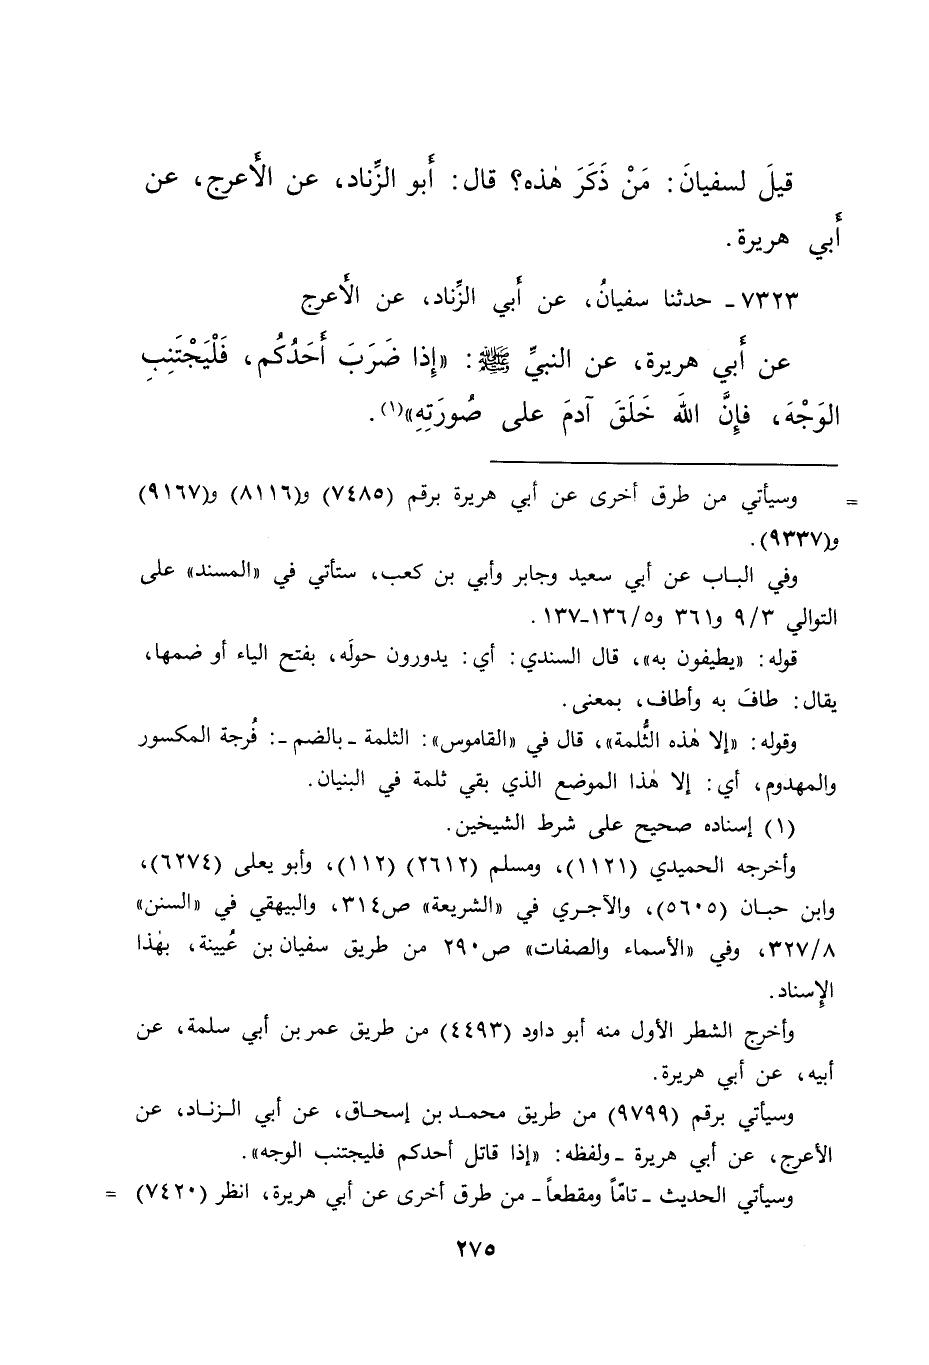 قيلَ لسفيانَ: مَنْ ذَكَرَ هٰذه؟ قال: أَبو الزِّناد، عن الأَعرج، عن
أَبي هريرة.
٧٣٢٣ـ حدثنا سفيانُ، عن أَبي الزِّناد، عن الأَعرج
عن أَبي هريرة، عن النبيِّ ﷺ: «إِذا ضَرَبَ أَحَدُكُم، فَلْيَجْتَنِبِ
الوَجْهَ، فإِنَّ اللهَ خَلَقَ آدمَ على صُورَتِهِ»(١).
= وسيأتي من طرق أخرى عن أبي هريرة برقم (٧٤٨٥) و(٨١١٦) و(٩١٦٧)
و(٩٣٣٧).
وفي الباب عن أبي سعيد وجابر وأبي بن كعب، ستأتي في «المسند» على
التوالي ٩/٣ و٣٦١ و١٣٦/٥-١٣٧.
قوله: «يطيفون به»، قال السندي: أي: يدورون حولَه، بفتح الياء أو ضمها،
يقال: طافَ به وأطاف، بمعنى.
وقوله: «إلا هٰذه الثُّلمة»، قال في «القاموس»: الثلمة ـ بالضم ـ: فُرجة المكسور
والمهدوم، أي: إلا هٰذا الموضع الذي بقي ثلمة في البنيان.
(١) إسناده صحيح على شرط الشيخين.
وأخرجه الحميدي (١١٢١)، ومسلم (٢٦١٢) (١١٢)، وأبو يعلى (٦٢٧٤)،
وابن حبان (٥٦٠٥)، والآجري في «الشريعة» ص٣١٤، والبيهقي في «السنن»
٣٢٧/٨، وفي «الأسماء والصفات» ص٢٩٠ من طريق سفيان بن عُيينة، بهٰذا
الإِسناد.
وأخرج الشطر الأول منه أبو داود (٤٤٩٣) من طريق عمر بن أبي سلمة، عن
أبيه، عن أبي هريرة.
وسيأتي برقم (٩٧٩٩) من طريق محمد بن إسحاق، عن أبي الزناد، عن
الأعرج، عن أبي هريرة ـ ولفظه: «إذا قاتل أحدكم فليجتنب الوجه».
وسيأتي الحديث ـ تامّاً ومقطعاً ـ من طرق أخرى عن أبي هريرة، انظر (٧٤٢٠) =
٢٧٥